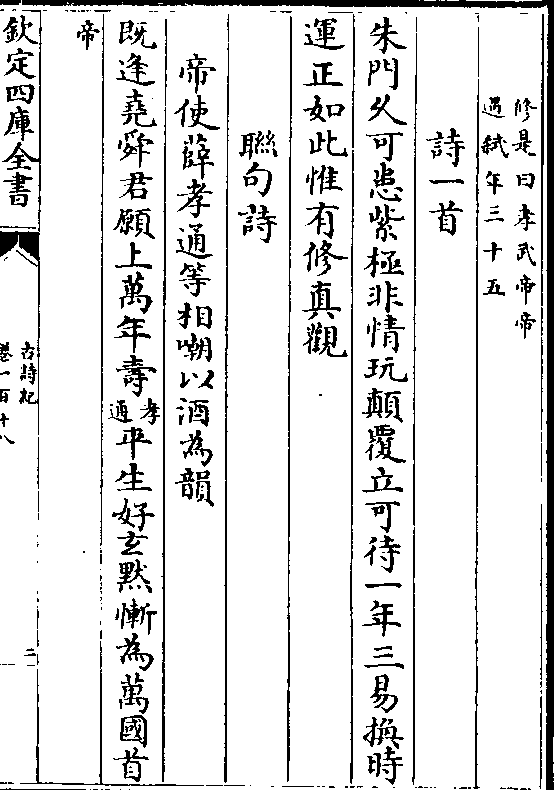 修是曰孝武帝帝
遇弑年三十五
詩一首
朱門久可患紫極非情玩顛覆立可待一年三易換時
運正如此惟有修真觀
聯句詩
帝使薛孝通等相嘲以酒為韻
既逢堯舜君願上萬年壽孝通平生好玄黙慚為萬國首
帝
欽定四庫全書
古詩紀
卷一百十八
二